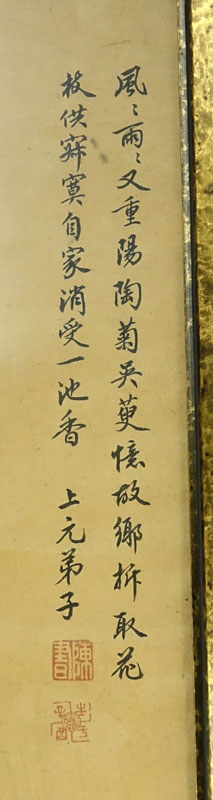 風〻雨〻又重陽陶菊吳萸憶故鄉拆取花
枝供寂寞自家消受一池香　上元弟子
陳書